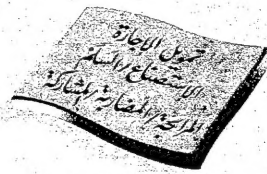 تمويل الاجارة
الاستصناع / السلم
المرابحة / المضاربة / المشاركة